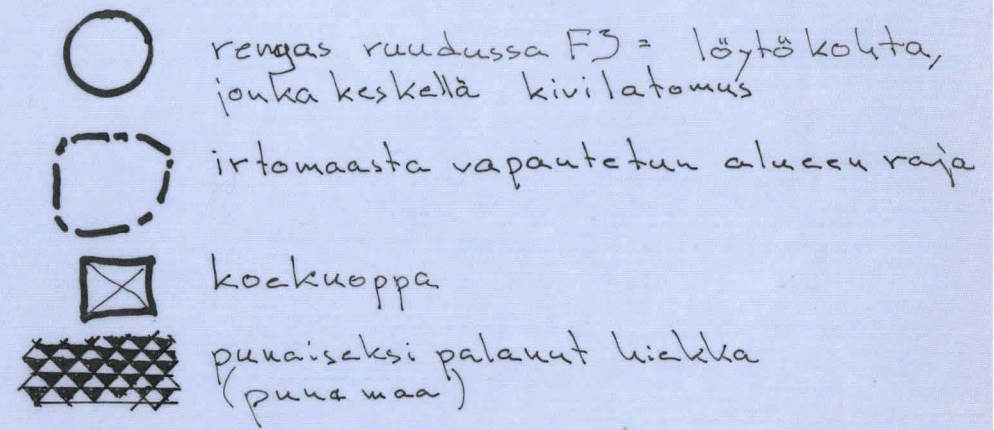 rengas ruudussa F3 = löytökohta,
jonka keskellä kivilatomus
irtomaasta vapautetun alueen raja
koekuoppa
punaiseksi palanut hiekka
(punamaa)